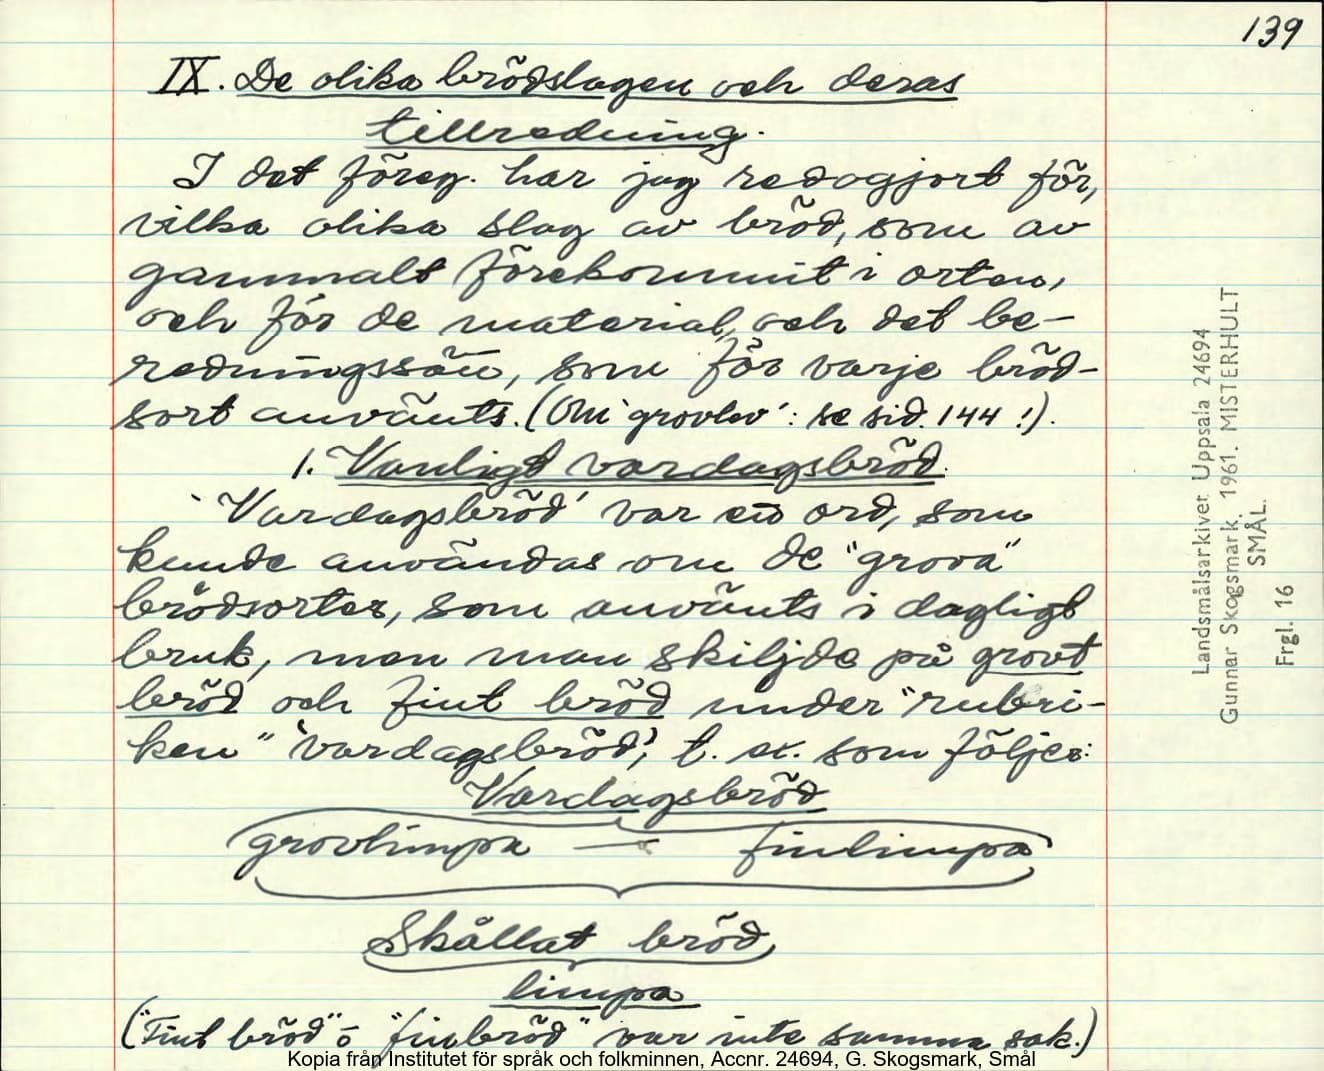 139
IX. De olika brödslagen och deras
tillredning.
I det föreg. har jag redogjort för,
vilka olika slag av bröd, som av
gammalt förekommit i orten,
och för de material, och det be-
redningssätt, som för varje bröd-
sort använts. (Om 'grovlev': se sid. 144 !).
1. Vanligt vardagsbröd.
'Vardagsbröd' var ett ord, som
kunde användas om de "grova"
brödsorter, som använts i dagligt
bruk, men man skiljde på grovt
bröd och fint bröd under "rubri-
ken" 'vardagsbröd', t. ex. som följer:
Vardagsbröd
grovlimpa — finlimpa
Skållat bröd
limpa
("Fint bröd" o "finbröd" var inte samma sak.)
Landsmålsarkivet Uppsala 24694
Gunnar Skogsmark. 1961. MISTERHULT
SMÅL.
Frgl. 16
Kopia från Institutet för språk och folkminnen, Accnr. 24694, G. Skogsmark, Smål